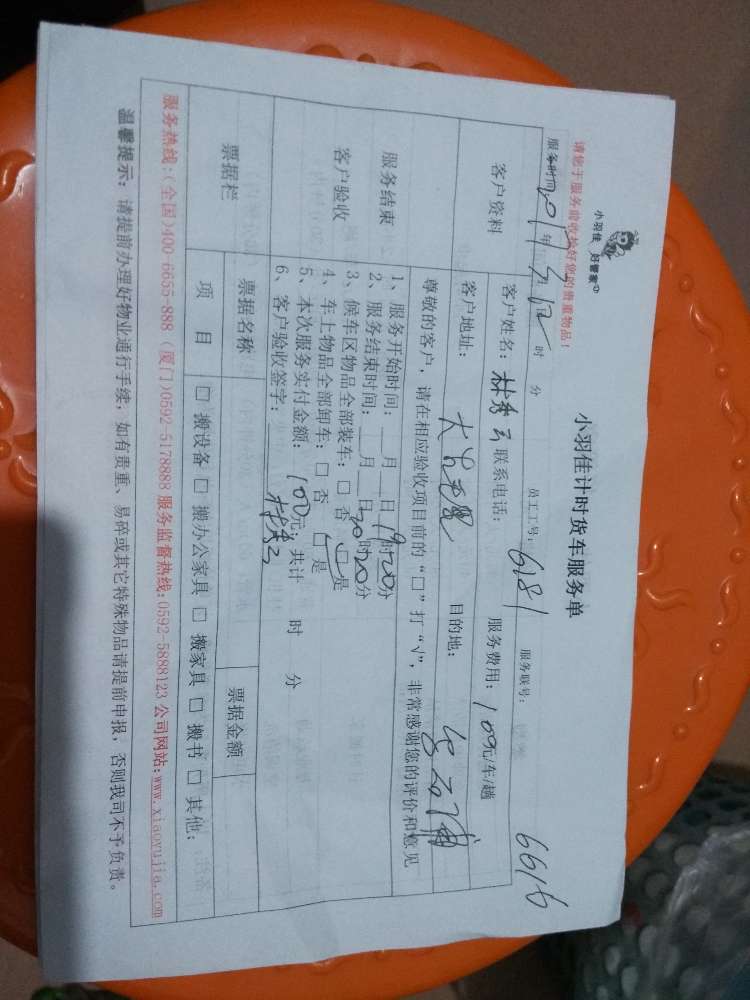 小羽佳 好管家
小羽佳计时货车服务单
请您于服务前收捡好您的贵重物品！
服务时间: 年 月 时 分 员工工号: 6181 服务联号: 6616
客户资料
客户姓名: 林秀云 联系电话: 服务费用: 100元/车/趟
客户地址: 目的地:
尊敬的客户，请在相应验收项目前的“□”打“√”，非常感谢您的评价和意见
服务结束
客户验收
1、服务开始时间: 月 日 19时20分
2、服务结束时间: 月 日 20时20分
3、候车区物品全部装车: □ 否 □ 是
4、车上物品全部卸车: □ 否 □ 是
5、本次服务实付金额: 100元; 共计 时 分
6、客户验收签字: 林秀云
票据栏
票据名称 票据金额
项 目 □ 搬设备 □ 搬办公家具 □ 搬家具 □ 搬书 □ 其他:
服务热线:(全国)400-6655-888 (厦门)0592-5178888 服务监督热线:0592-5888123 公司网站:www.xiaoyujia.com
温馨提示: 请提前办理好物业通行手续，如有贵重、易碎或其它特殊物品请提前申报，否则我司不予负责。